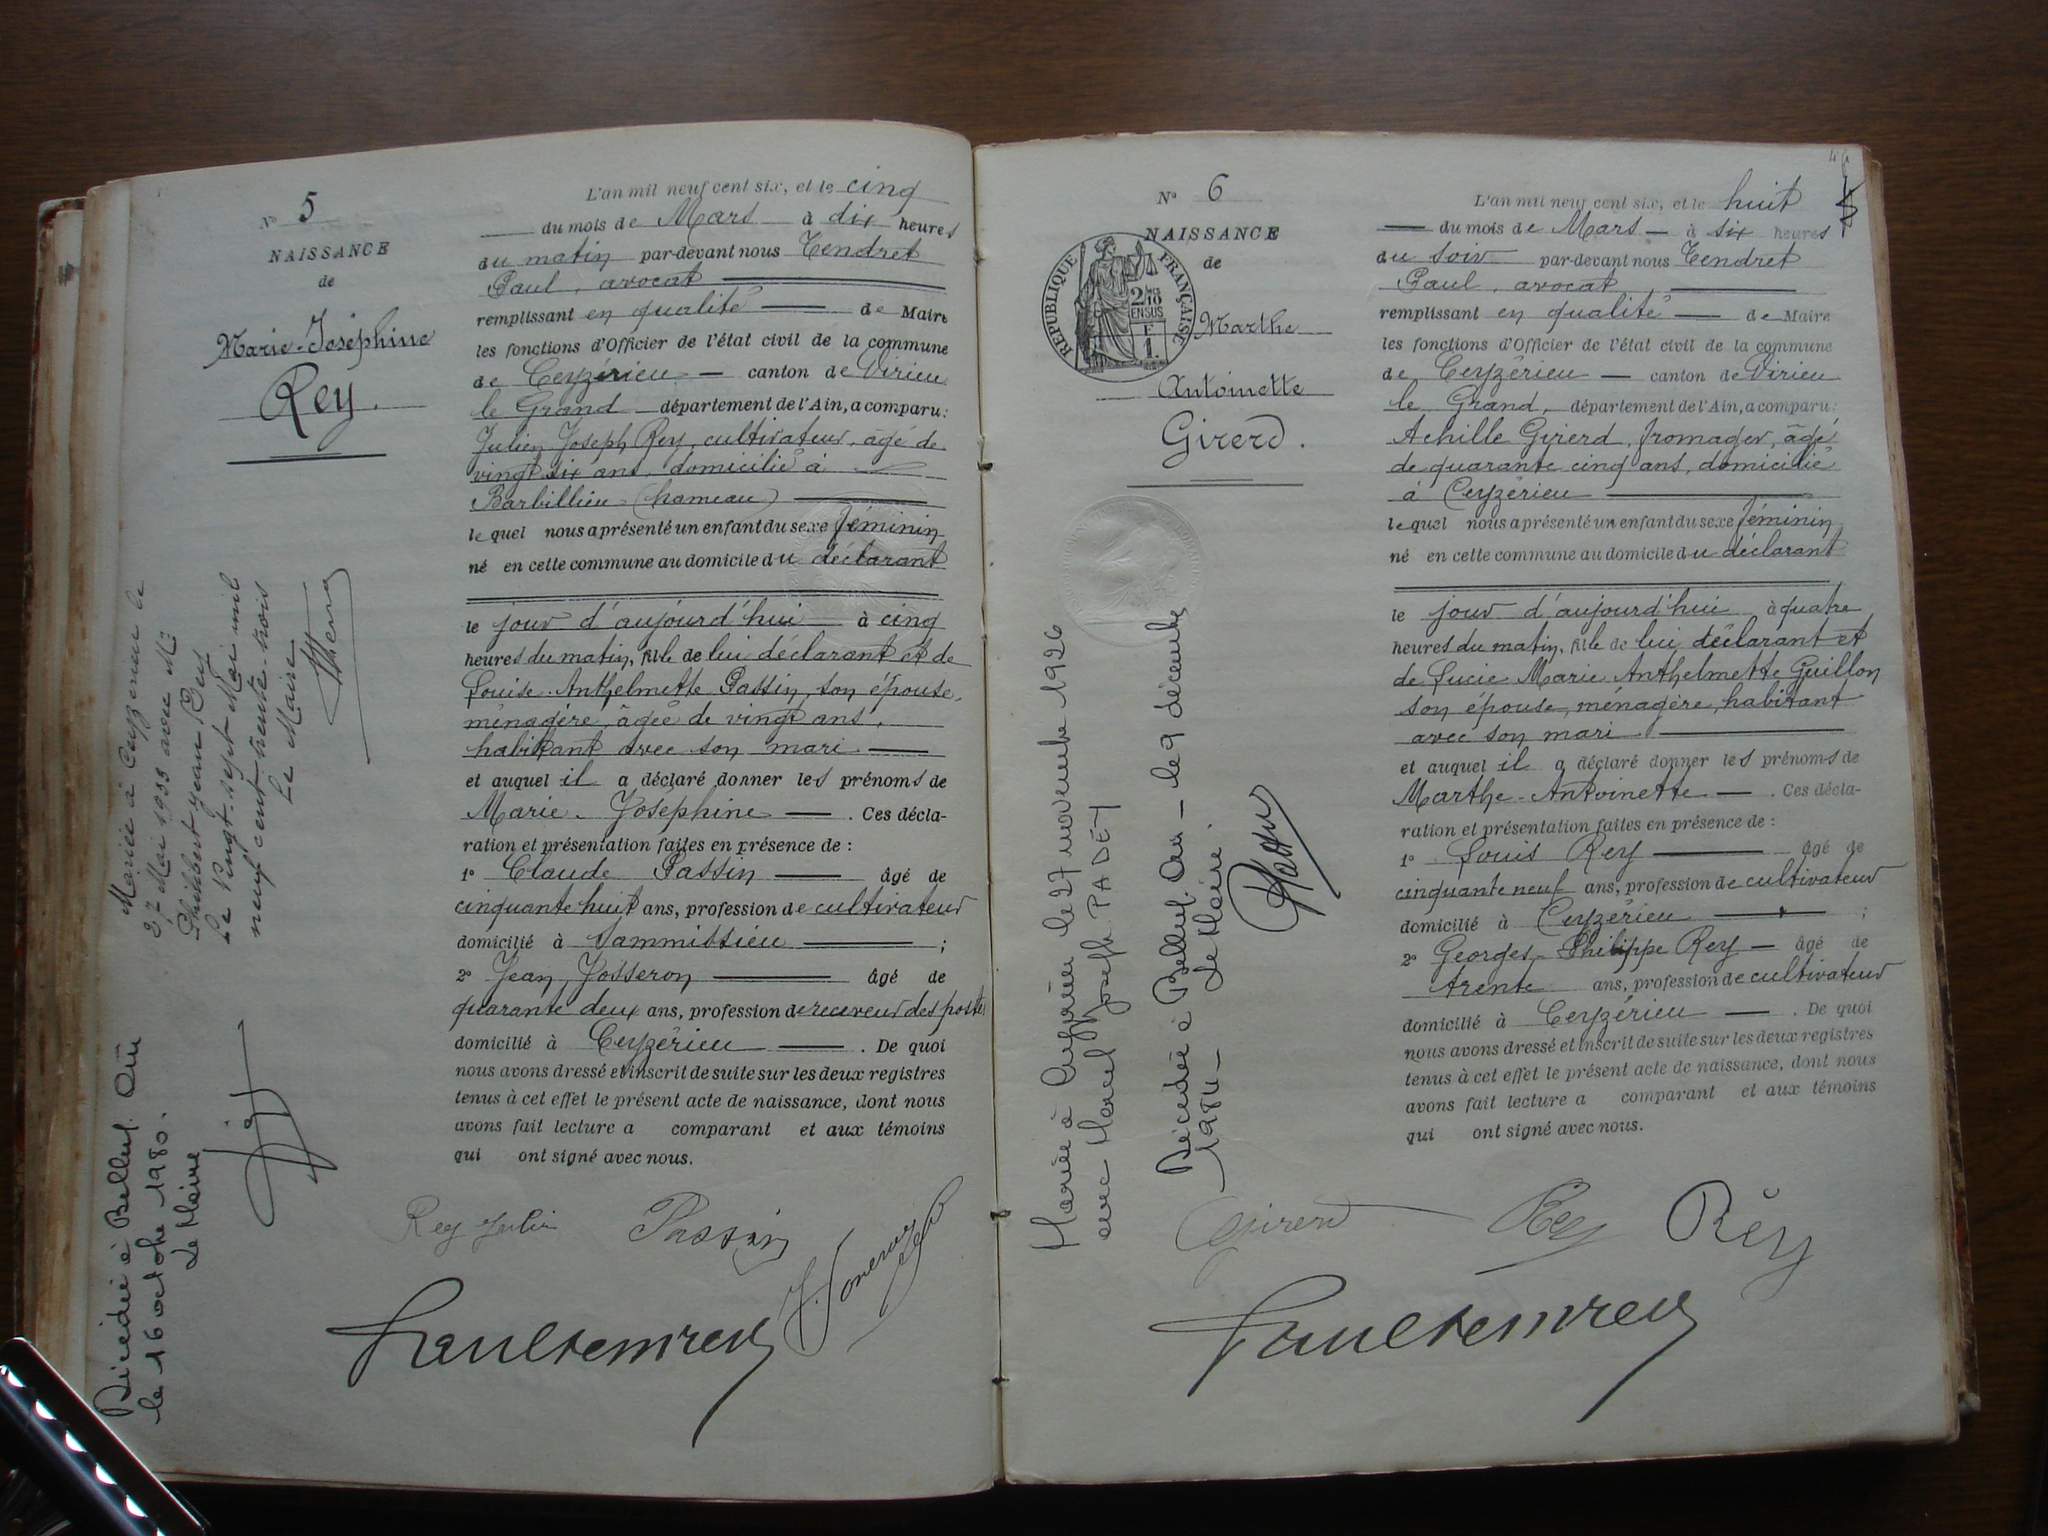 N° 5
NAISSANCE
de
Marie-Joséphine
Rey.
L'an mil neuf cent six, et le cinq
du mois de Mars à dix heures
du matin par-devant nous Tendret
Paul, avocat
remplissant en qualité de Maire
les fonctions d'Officier de l'état civil de la commune
de Ceyzérieu canton de Virieu
le Grand département de l'Ain, a comparu:
Julien Joseph Rey, cultivateur, âgé de
vingt six ans, domicilié à
Barbillieu (hameau)
lequel nous a présenté un enfant du sexe féminin
né en cette commune au domicile du déclarant
le jour d'aujourd'hui à cinq
heures du matin, fille de lui déclarant et de
Louise Anthelmette Passin, son épouse,
ménagère, âgée de vingt ans,
habitant avec son mari.
et auquel il a déclaré donner les prénoms de
Marie-Joséphine. Ces décla-
ration et présentation faites en présence de :
1° Claude Passin âgé de
cinquante huit ans, profession de cultivateur
domicilié à ;
2° Jean Josseron âgé de
quarante deux ans, profession de receveur des postes
domicilié à Ceyzérieu. De quoi
nous avons dressé et inscrit de suite sur les deux registres
tenus à cet effet le présent acte de naissance, dont nous
avons fait lecture a comparant et aux témoins
qui ont signé avec nous.
Rey Julien Passin
Mariée à Ceyzérieu le
27 Mai 1933 avec Mr
Philibert Jean
Le Vingt-sept Mai mil
neuf cent trente-trois
Le Maire
Décédée à Belley. Ain
le 16 octobre 1980.
Le Maire
N° 6
NAISSANCE
de
RÉPUBLIQUE FRANÇAISE
2/10
EN SUS
F
1.
Marthe
Antoinette
Girerd.
L'an mil neuf cent six, et le huit
du mois de Mars à six heures
du soir par-devant nous Tendret
Paul, avocat
remplissant en qualité de Maire
les fonctions d'Officier de l'état civil de la commune
de Ceyzérieu canton de Virieu
le Grand, département de l'Ain, a comparu:
Achille Girerd, fromager, âgé
de quarante cinq ans, domicilié
à Ceyzérieu
lequel nous a présenté un enfant du sexe féminin,
né en cette commune au domicile du déclarant
le jour d'aujourd'hui à quatre
heures du matin, fille de lui déclarant et
de Lucie Marie Anthelmette Guillon
son épouse, ménagère, habitant
avec son mari.
et auquel il a déclaré donner les prénoms de
Marthe-Antoinette. Ces décla-
ration et présentation faites en présence de :
1° Louis Rey âgé de
cinquante neuf ans, profession de cultivateur
domicilié à Ceyzérieu ;
2° Georges Philippe Rey âgé de
trente ans, profession de cultivateur
domicilié à Ceyzérieu. De quoi
nous avons dressé et inscrit de suite sur les deux registres
tenus à cet effet le présent acte de naissance, dont nous
avons fait lecture a comparant et aux témoins
qui ont signé avec nous.
Girerd Rey Rey
Mariée à Ceyzérieu le 27 novembre 1926
avec Marcel Joseph PADEY
Décédée à Belley. Ain - le 9 décembre
1984 - Le Maire.